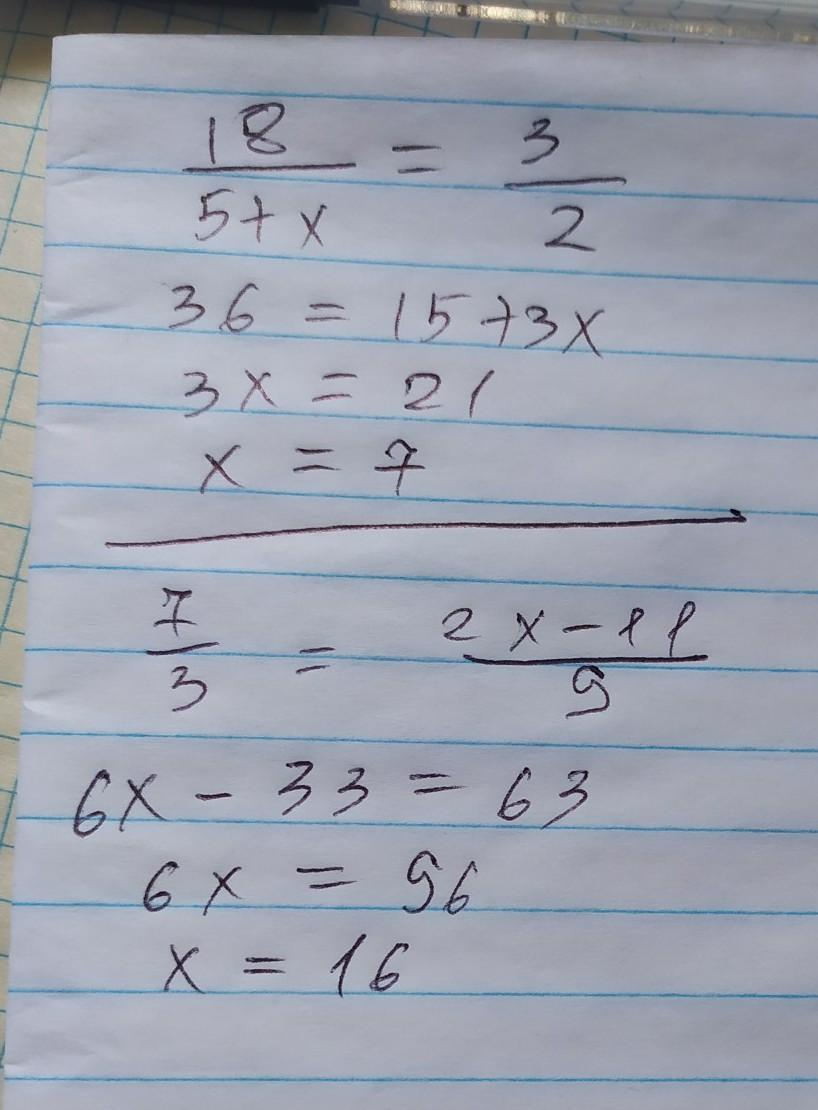 18/(5+x) = 3/2
36 = 15+3x
3x = 21
x = 7
7/3 = (2x-11)/9
6x - 33 = 63
6x = 96
x = 16